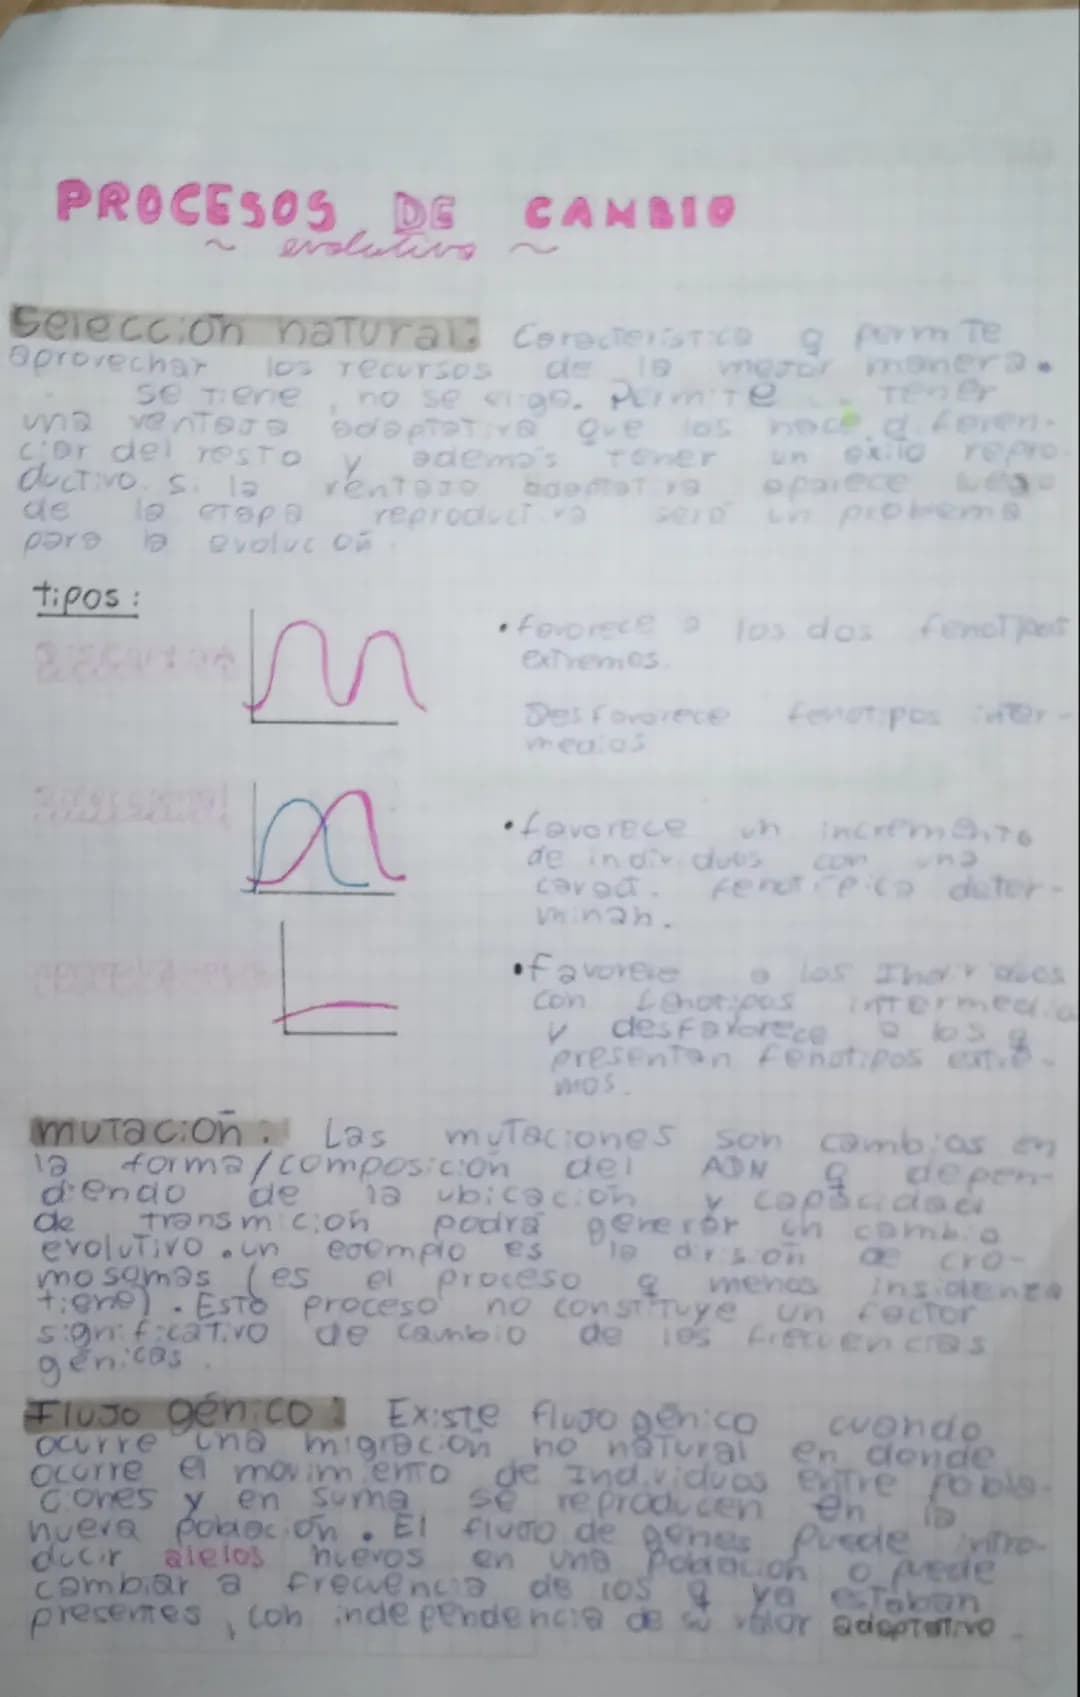 PROCESOS DE CAMBIO
~ evolutivo ~
selección natural: Característica q permite
aprovechar los recursos de la mejor manera.
se tiene, no se elige. Permite tener
una ventaja adaptativa que los hace diferen-
ciar del resto y además tener un éxito repro-
ductivo. Si la ventaja adaptativa aparece luego
de la etapa reproductiva será un problema
para la evolución.
tipos:
• favorece a los dos fenotipos
extremos.
Desfavorece fenotipos inter-
medios
• favorece un incremento
de individuos con una
caract. fenotípica deter-
minan.
• Favorece a los Individuos
con fenotipos intermedio
y desfavorece a los q
presentan fenotipos extre-
mos.
mutación: Las mutaciones son cambios en
la forma/composición del ADN q depen-
diendo de la ubicación y capacidad
de transmición podrá generar un cambio
evolutivo. un ejemplo es la de cro-
mosomas (es el proceso q menos insidenza
tiene). Esto proceso no constituye un factor
significativo de cambio de les frecuencias
génicas.
Flujo génico: Existe flujo génico cuando
ocurre una migración no natural en donde
ocurre el movimiento de Individuos entre pobla-
ciones y en suma se reproducen en la
nueva población. El flujo de genes puede intro-
ducir alelos nuevos en una población o puede
cambiar a frecuencia de los q ya estaban
presentes, con independencia de su valor adaptativo.